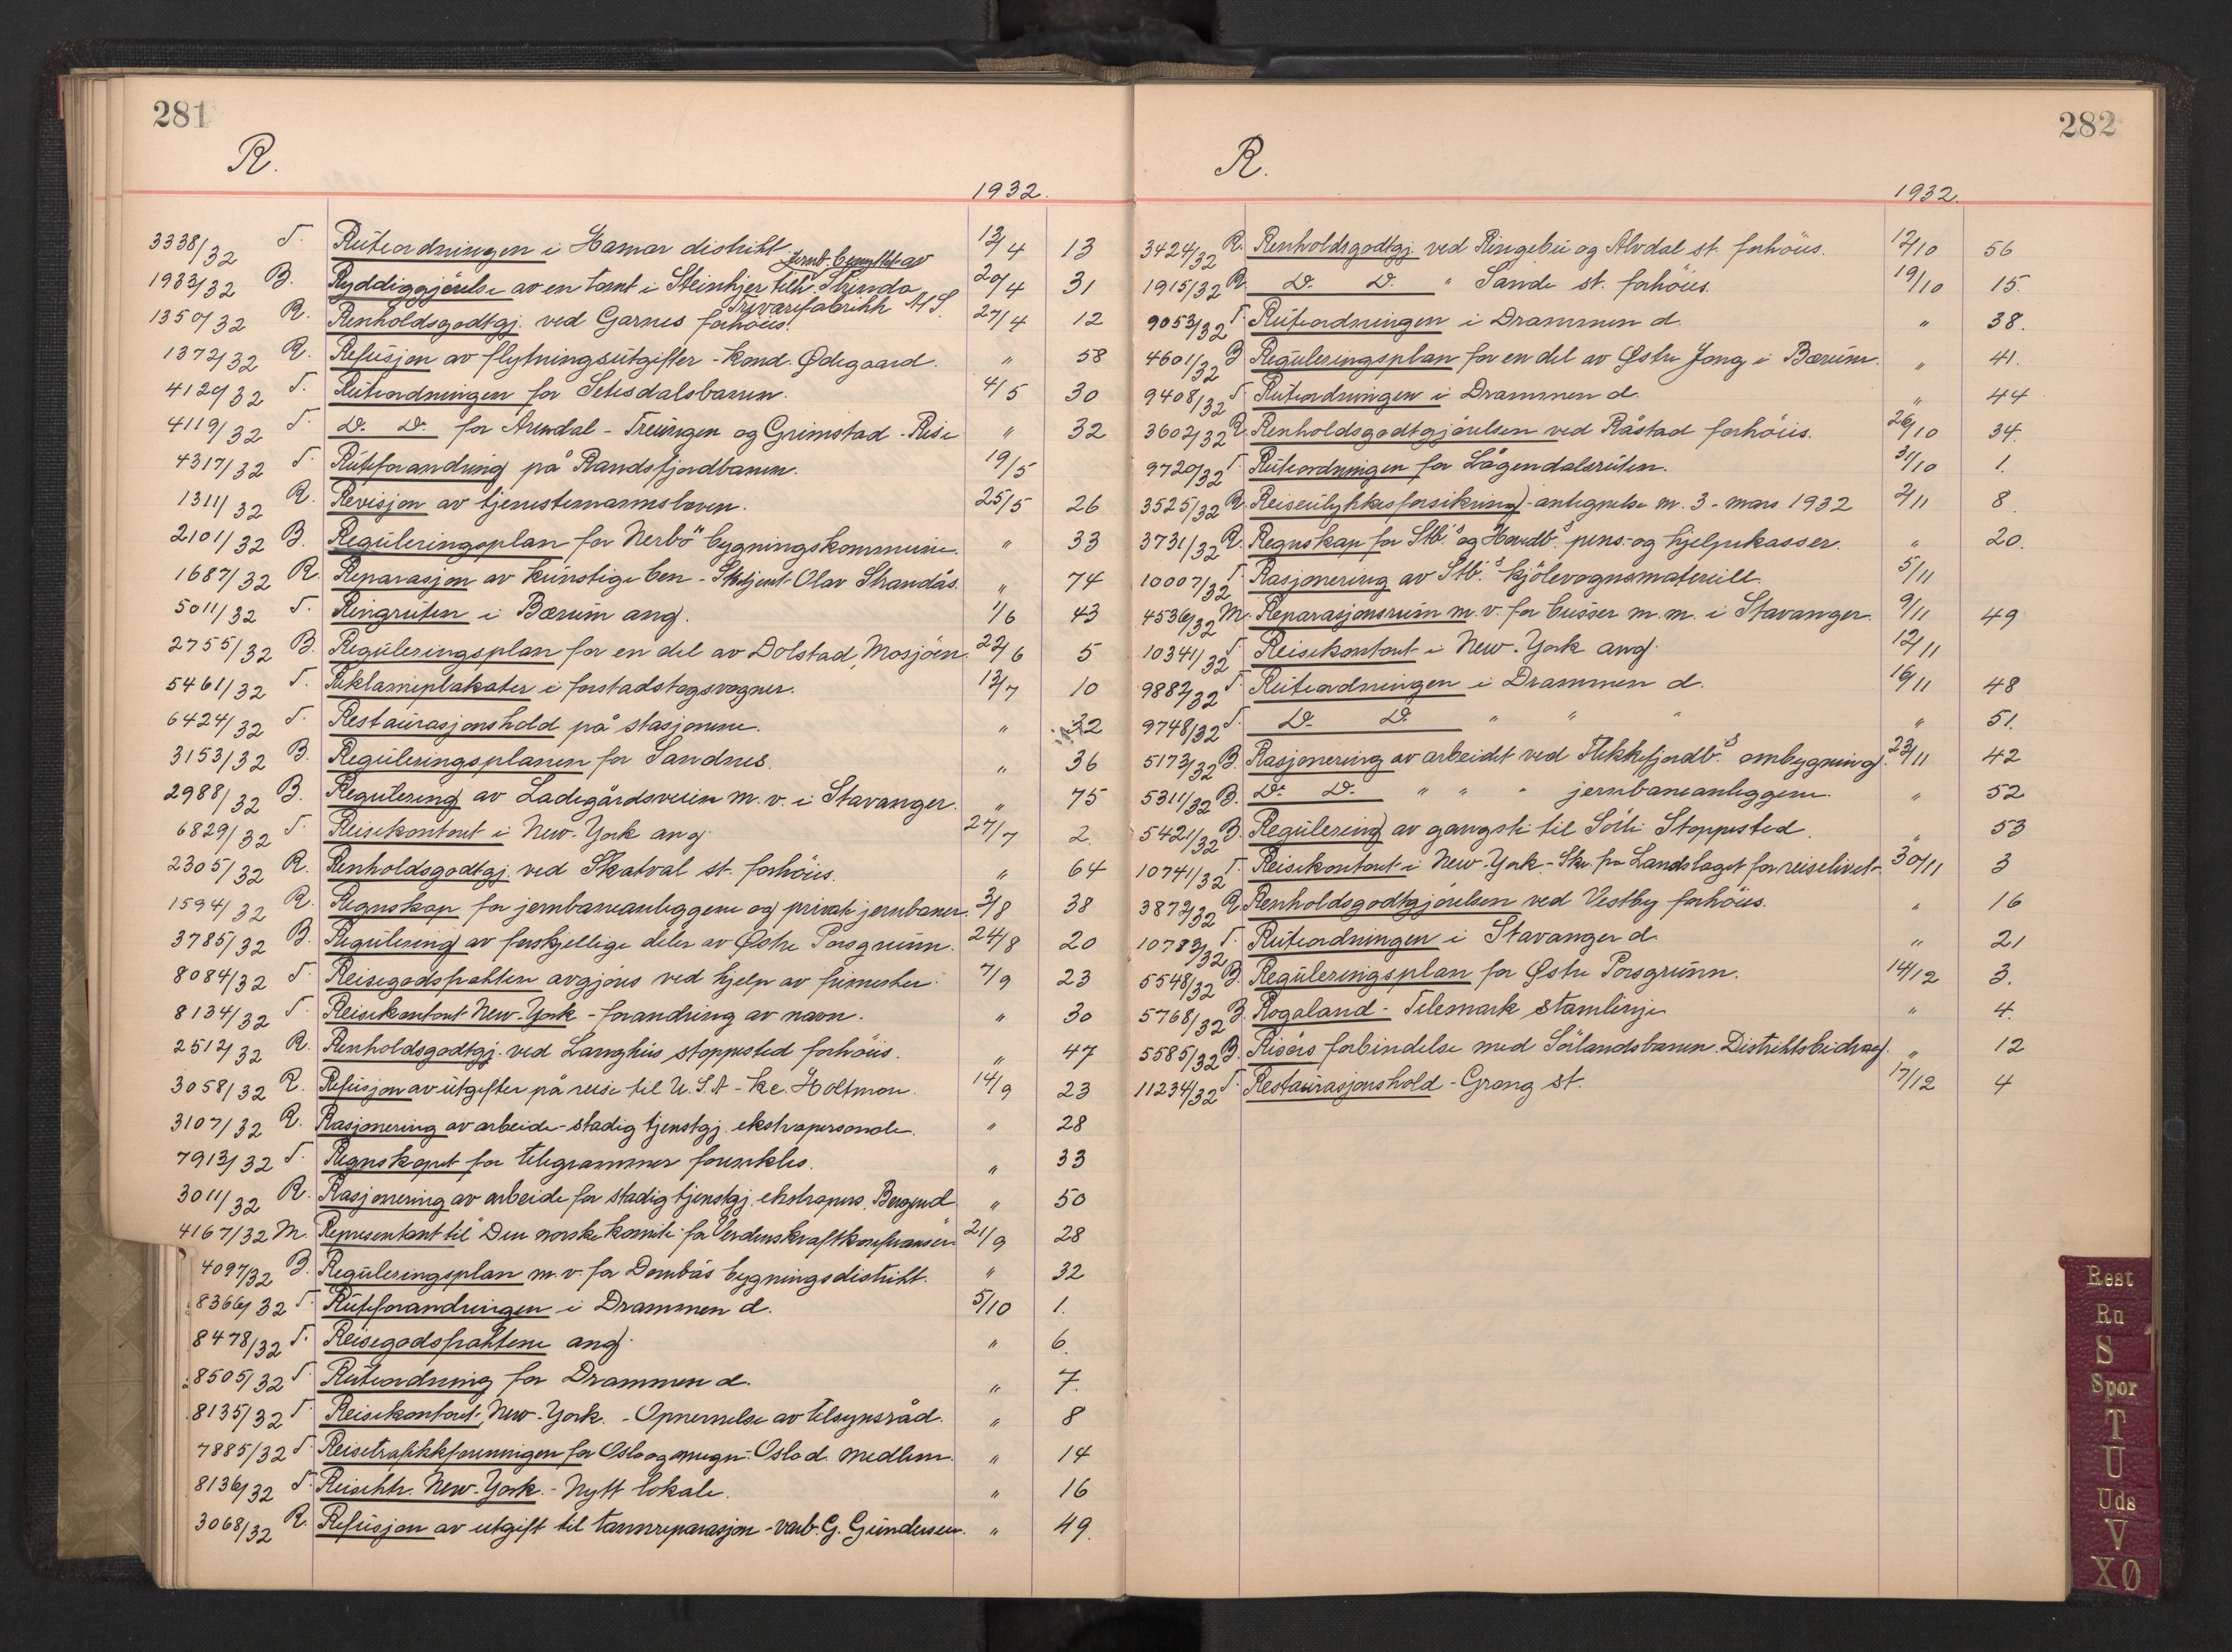 281
R.
1932.
3338/32 T. Ruteordningen i Hamar distrikt 13/4 13
jernb. benyttet av
1933/32 B. Ryddiggjörelse av en tomt i Steinkjer tilh. Strinda 20/4 31
Trevarefabrikk A/S.
1350/32 R. Renholdsgodtgj. ved Garnes forhöies. 27/4 12
1372/32 R. Refusjon av flytningsutgifter - Kond. Ødegaard. " 58
4129/32 T. Ruteordningen for Setesdalsbanen. 4/5 30
4119/32 T. Do. Do. for Arendal - Treungen og Grimstad - Rise " 32
4317/32 T. Ruteforandring på Randsfjordbanen. 19/5
1311/32 R. Revisjon av tjenestemannsloven. 25/5 26
2101/32 B. Reguleringsplan for Nerbö bygningskommune. " 33
1687/32 R. Reparasjon av kunstige ben - Stetjent Olav Strandås. " 74
5011/32 T. Ringruten i Bærum ang. 1/6 43
2755/32 B. Reguleringsplan for en del av Dolstad, Mosjöen. 22/6 5
5461/32 T. Reklameplakater i forstadstogsvogner. 13/7 10
6424/32 T. Restaurasjonshold på stasjonene. " 32
3153/32 B. Reguleringsplanen for Sandnes. " 36
2988/32 B. Regulering av Ladegårdsveien m.v. i Stavanger. " 75
6829/32 T. Reisekontoret i New-York ang. 27/7 2.
2305/32 R. Renholdsgodtgj. ved Skatval st. forhöies. " 64
1594/32 R. Regnskap for jernbaneanleggene og private jernbaner. 3/8 38
3785/32 B. Regulering av forskjellige deler av Østre Porsgrunn. 24/8 20
8084/32 T. Reisegodsfrakten avgjöres ved hjelp av frimerker. 7/9 23
8134/32 T. Reisekontoret New-York - forandring av navn. " 30
2512/32 R. Renholdsgodtgj. ved Langhus stoppested forhöies. " 47
3058/32 R. Refusjon av utgifter på reise til U.S.A - Ke. Holtmon. 14/9 23
3107/32 R. Rasjonering av arbeide - stadig tjenstgj. ekstrapersonale. " 28
7913/32 T. Regnskapet for telegrammer forenkles. " 33
3011/32 R. Rasjonering av arbeide for stadig tjenstgj. ekstrapers. Bergen d " 50
4167/32 M. Representant til "Den norske komite for Verdenskraftkonferansen" 21/9 28
4097/32 B. Reguleringsplan m.v. for Dombås bygningsdistrikt. " 32
8366/32 T. Ruteforandringen i Drammen d. 5/10 1.
8478/32 T. Reisegodsfraktene ang. " 6.
8505/32 T. Ruteordning for Drammen d. " 7.
8135/32 T. Reisekontoret, New-York. - Opnevnelse av tilsynsråd. " 8
7885/32 T. Reisetrafikkforeningen for Oslo og omegn - Oslo d. medlem. " 14
8136/32 T. Reisektr. New-York. - Nytt lokale. " 16
3068/32 R. Refusjon av utgift til tannreparasjon - varb. G. Gundersen. " 49.
282
R.
1932.
3424/32 R. Renholdsgodtgj. ved Ringebu og Alvdal st. forhöies. 12/10 56
1915/32 R. Do. Do. " Sande st. forhöies. 19/10 15.
9053/32 T. Ruteordningen i Drammen d. " 38.
4601/32 B. Reguleringsplan for en del av Østre Jong i Bærum. " 41.
9408/32 T. Ruteordningen i Drammen d. " 44
3602/32 R. Renholdsgodtgjörelsen ved Råstad forhöies. 26/10 34.
9720/32 T. Ruteordningen for Lågendalsruten. 31/10 1.
3525/32 R. Reiseulykkesforsikring - antegnelse nr. 3 - mars 1932 2/11 8
3731/32 R. Regnskap for Stb.s og Hovedb.s pens.- og hjelpekasser. " 20.
10007/32 T. Rasjonering av Stb.s kjölevognsmateriell. 5/11
4536/32 M. Reparasjonsrum m.v. for busser m.m. i Stavanger. 9/11 49
10341/32 T. Reisekontoret i New-York ang. 12/11
9882/32 T. Ruteordningen i Drammen d. 16/11 48
9748/32 T. Do. Do. " " " " 51.
5173/32 B. Rasjonering av arbeidet ved Flekkefjordb.s ombygning. 23/11 42
5311/32 B. Do. Do. " " " jernbaneanleggene. " 52
5421/32 B. Regulering av gangsti til Sörli Stoppested. " 53
10741/32 T. Reisekontoret i New-York - Skr. fra Landslaget for reiselivet - 30/11 3
3872/32 R. Renholdsgodtgjörelsen ved Vestby forhöies. " 16
10783/32 T. Ruteordningen i Stavanger d. " 21
5548/32 B. Reguleringsplan for Østre Porsgrunn. 14/12 3.
5768/32 B. Rogaland - Telemark stamlinje " 4.
5585/32 B. Risörs forbindelse med Sörlandsbanen. Distriktsbidrag. " 12
11234/32 T. Restaurasjonshold - Grong st. 17/12 4
Rest
Ru
S
Spor
T
U
Uds
V
XØ